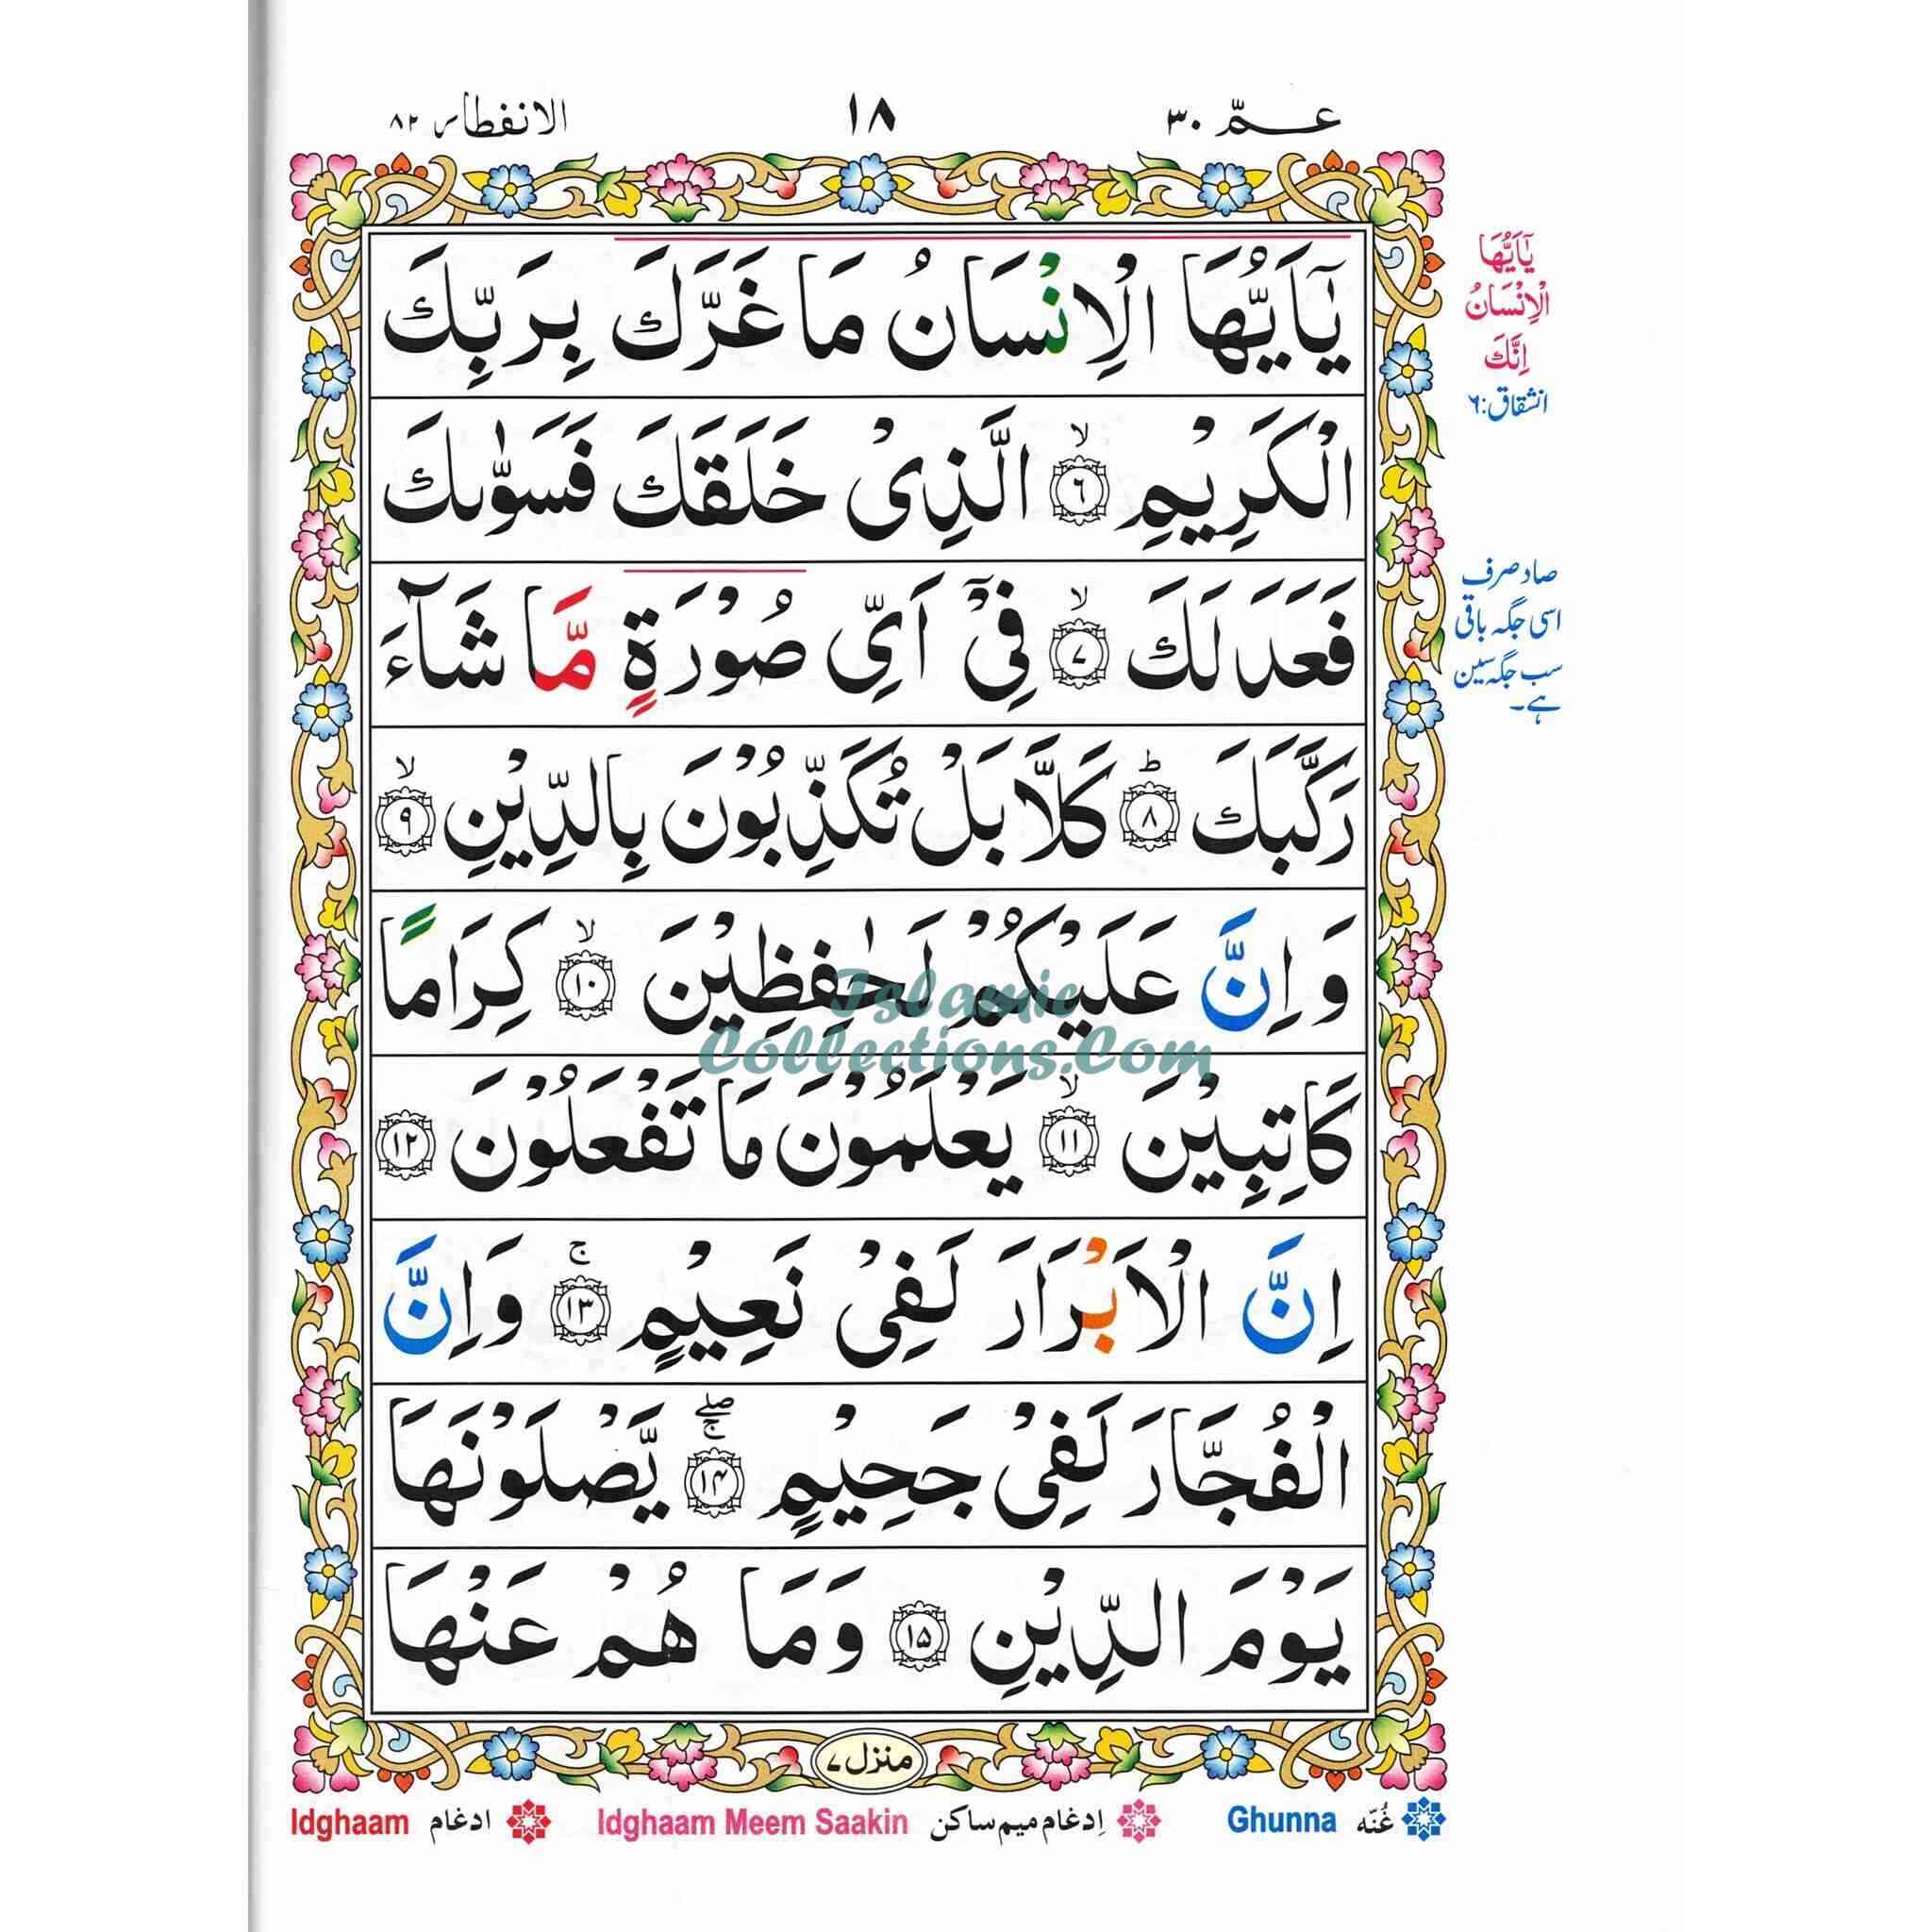 عـمّ ٣٠
١٨
الانفطار ٨٢
يٰٓاَيُّهَا الْاِنْسَانُ مَا غَرَّكَ بِرَبِّكَ
الْكَرِيْمِ ۙ‏ ٦ الَّذِىْ خَلَقَكَ فَسَوّٰىكَ
فَعَدَلَكَ ۙ‏ ٧ فِىْٓ اَىِّ صُوْرَةٍ مَّا شَآءَ
رَكَّبَكَ ؕ‏ ٨ كَلَّا بَلْ تُكَذِّبُوْنَ بِالدِّيْنِ ۙ‏ ٩
وَاِنَّ عَلَيْكُمْ لَحٰفِظِيْنَ ۙ‏ ١٠ كِرَامًا
كَاتِبِيْنَ ۙ‏ ١١ يَعْلَمُوْنَ مَا تَفْعَلُوْنَ ١٢
اِنَّ الْاَبْرَارَ لَفِىْ نَعِيْمٍ ۚ‏ ١٣ وَاِنَّ
الْفُجَّارَ لَفِىْ جَحِيْمٍ ۖۚ‏ ١٤ يَّصْلَوْنَهَا
يَوْمَ الدِّيْنِ ١٥ وَمَا هُمْ عَنْهَا
يٰٓاَيُّهَا
الْاِنْسَانُ
اِنَّكَ
انشقاق:٦
صاد صرف
اسی جگہ باقی
سب جگہ سین
ہے۔
Islamic
Collections.Com
منزل ٧
غُنّه Ghunna
اِدغام میم ساکن Idghaam Meem Saakin
ادغام Idghaam